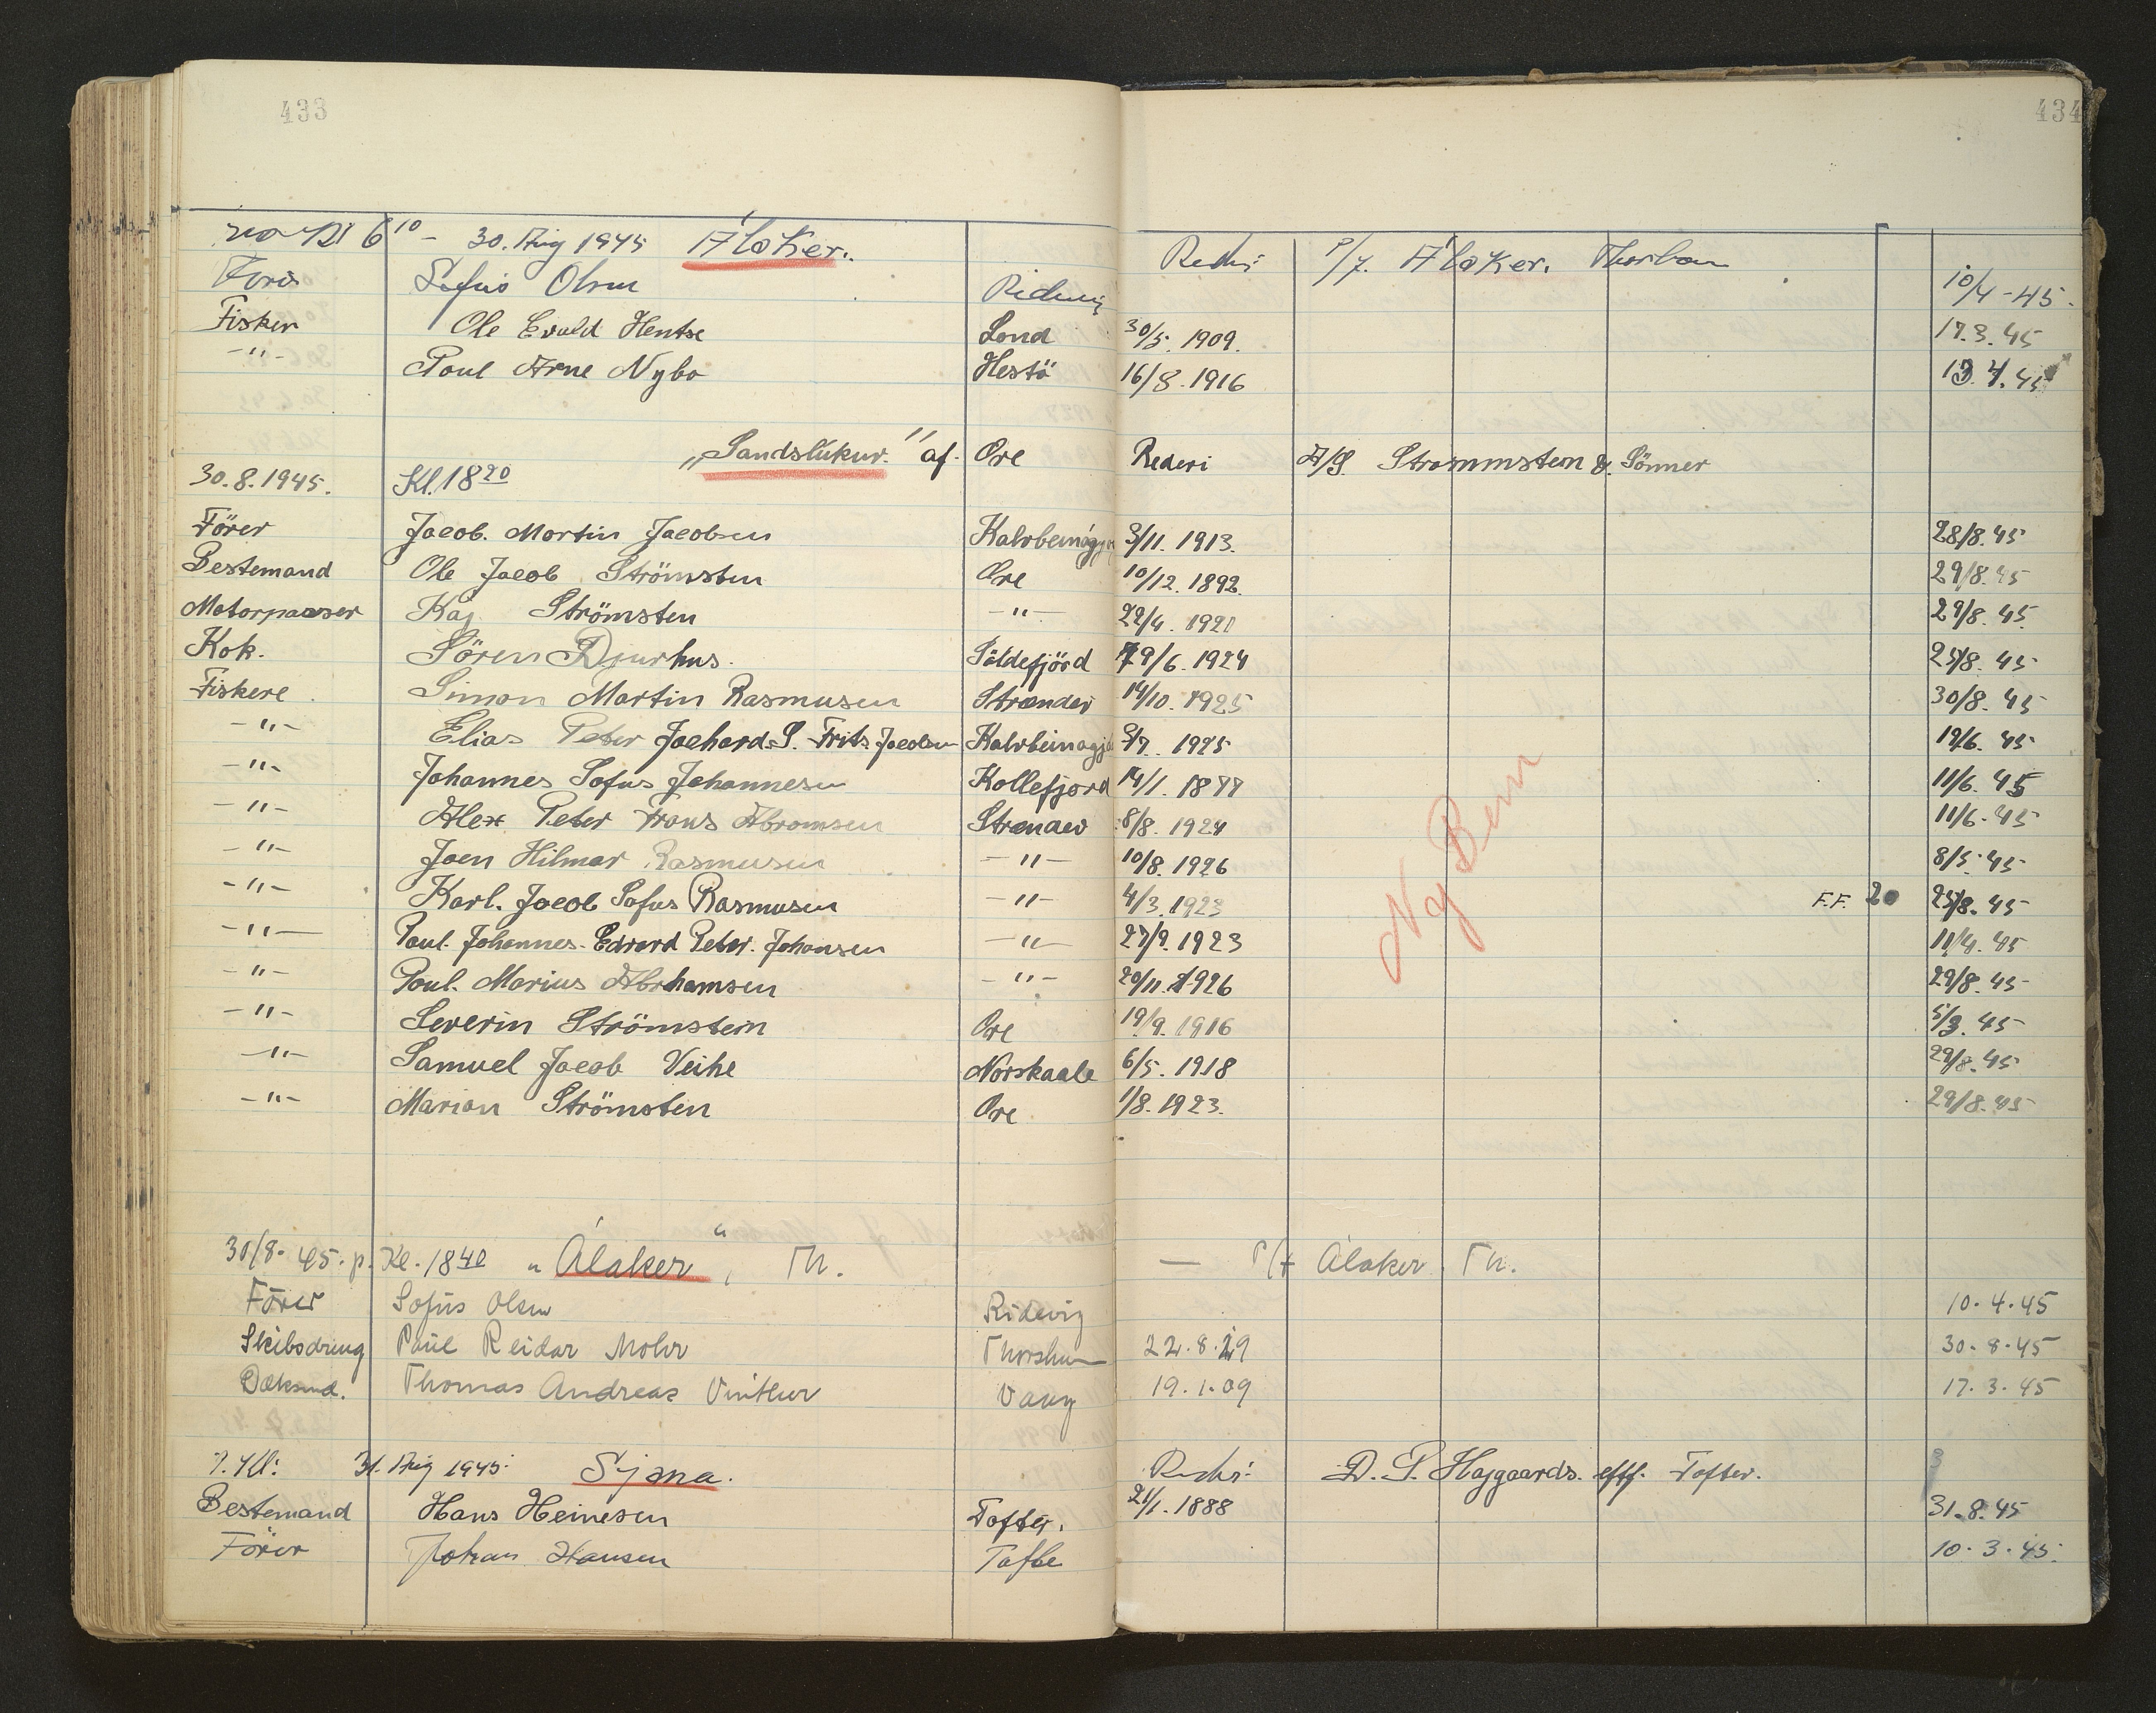 433
434
30. Aug 1945 Áloker. Rederi P/f. Áloker. Thorshavn
Förer Sofus Olsen Ridevig 10/4-45.
Fisker Ole Evald Hentze Sond 30/5. 1909. 17.3.45
-"- Poul Arne Nybo Hestö 16/8.1916 4.45
„Sandslúkur." af. Ore Rederi A/S Strommstem & Sönner
30.8.1945. Kl. 18 20
Förer Jacob. Martin Jacobsen Kalvbeinágjog 3/11. 1913. 28/8.45
Bestemand Ole Jacob Strömsten Ore 10/12.1892. 29/8.45
Motorpasser Kaj Strömsten -"- 22/4. 1920 29/8.45.
Kok. Sören Djurhus. Söldefjörd 29/6.1924 25/8.45
Fiskere Simon Martin Rasmusen Strænder 14/10.1925 30/8.45
-"- Elias Peter Jachard. S. Frits Jacobsen Kalvbeinagjo /7. 1925 19/6. 45
-"- Johannes Sofus Johannesen Kollefjord 14/1. 18 11/6. 45
-"- Alex Peter Frans Abromsen Strænder 8/8. 1924 11/6-45
-"- Joen Hilmar Rasmusen -"- 10/8.1926 8/5.45
-"- Karl. Jacob Sofus Rasmusen -"- 4/3.1923 F.F. 20 25/8.45
-"- Poul. Johannes. Edvard Peter. Johansen -"- 27/9.1923 11/4.45
-"- Poul. Marius Abrhamsen -"- 20/11.1926 29/8.45
-"- Severin Strömstein Ore 19/9.1916 5/3.45
-"- Samuel Jacob Veihe Norskaale 6/5. 1918 29/8.45
-"- Marian Strömsten Ore 1/8.1923. 29/8.45
Ny Bem
30/8-45. p. Kl. 18 40 „Álaker", Th. — P/f Álaker Th.
Förer Sofús Olsen Ridevig 10.4.45
Skibsdreng Paúl Reidar Mohr Thorshavn 22.8.29 30.8.45
Dæksmd. Thomas Andreas Vinther Vaag 19.1.09 17.3.45
31. Aug 1945. Syjna. Rederi: D. P. Højgaards. eftf. Tofter.
Bestemand Hans Heinesen Tofter. 21/1.1888 31.8.45
Förer Johan Hansen Tofte 10.3.45.